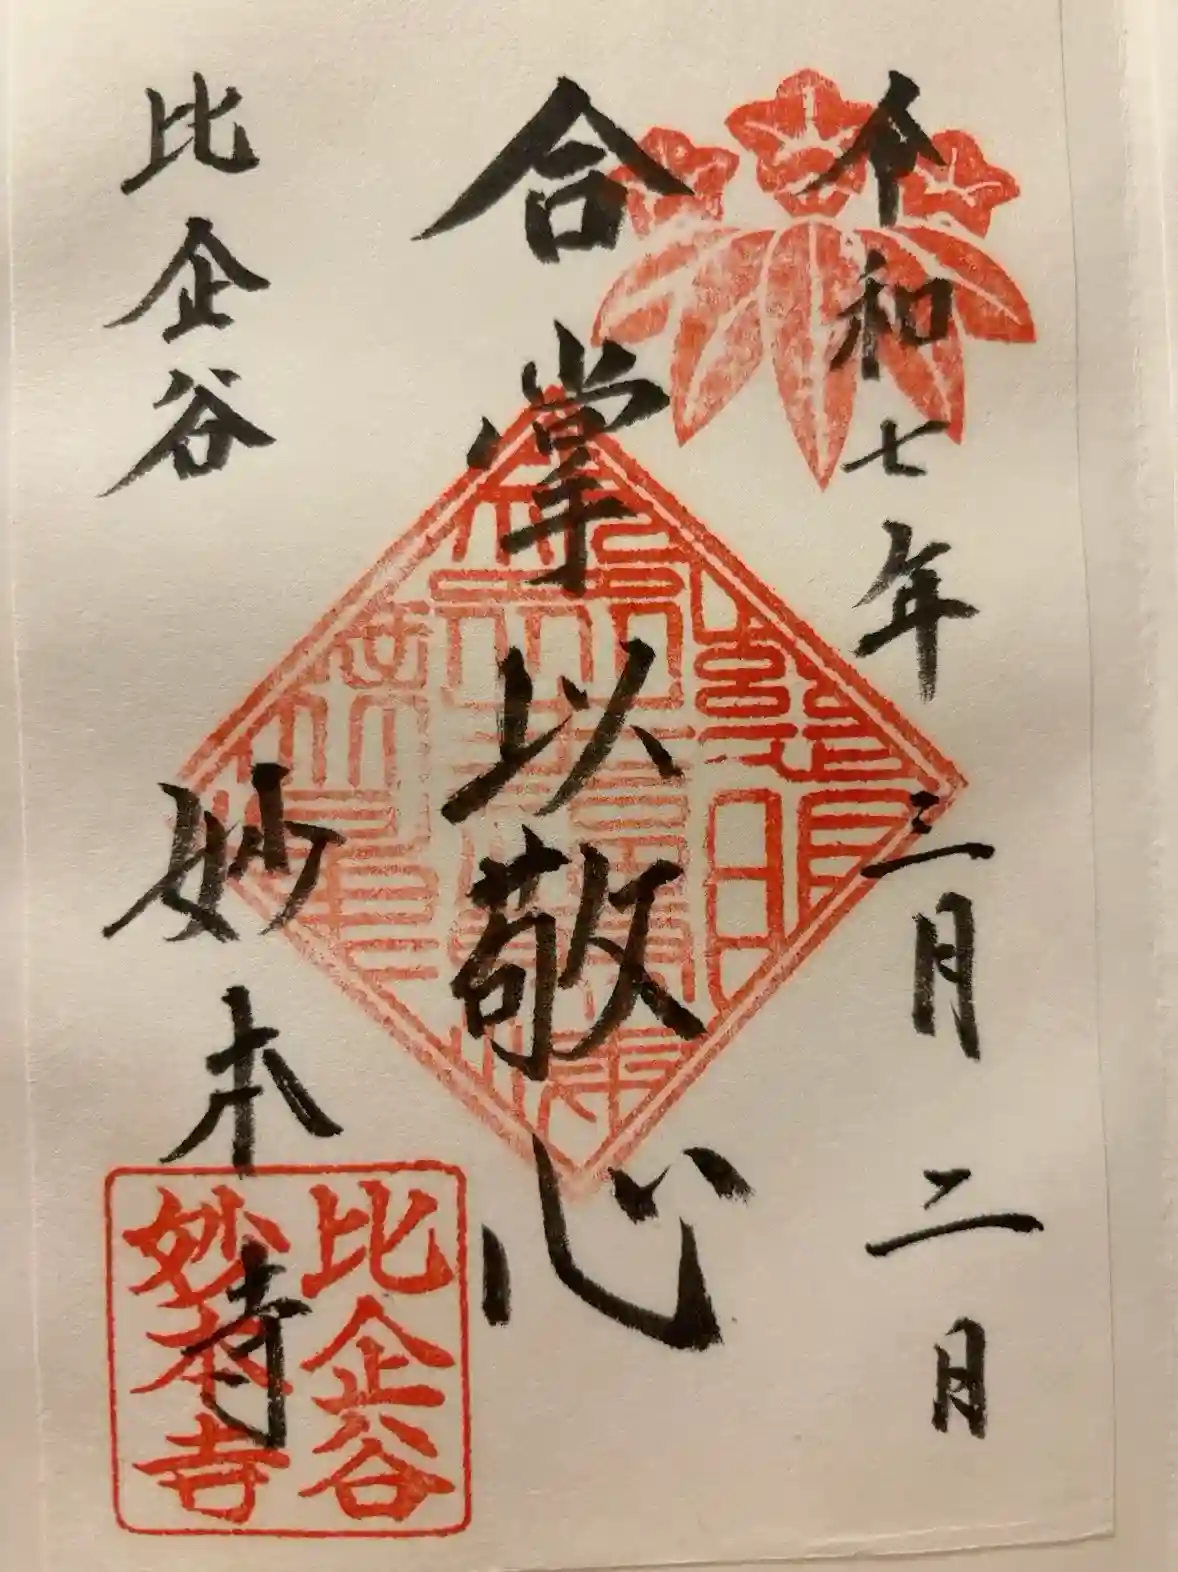 令和七年三月二日
合掌以敬心
比企谷
妙本寺
比企谷
妙本寺